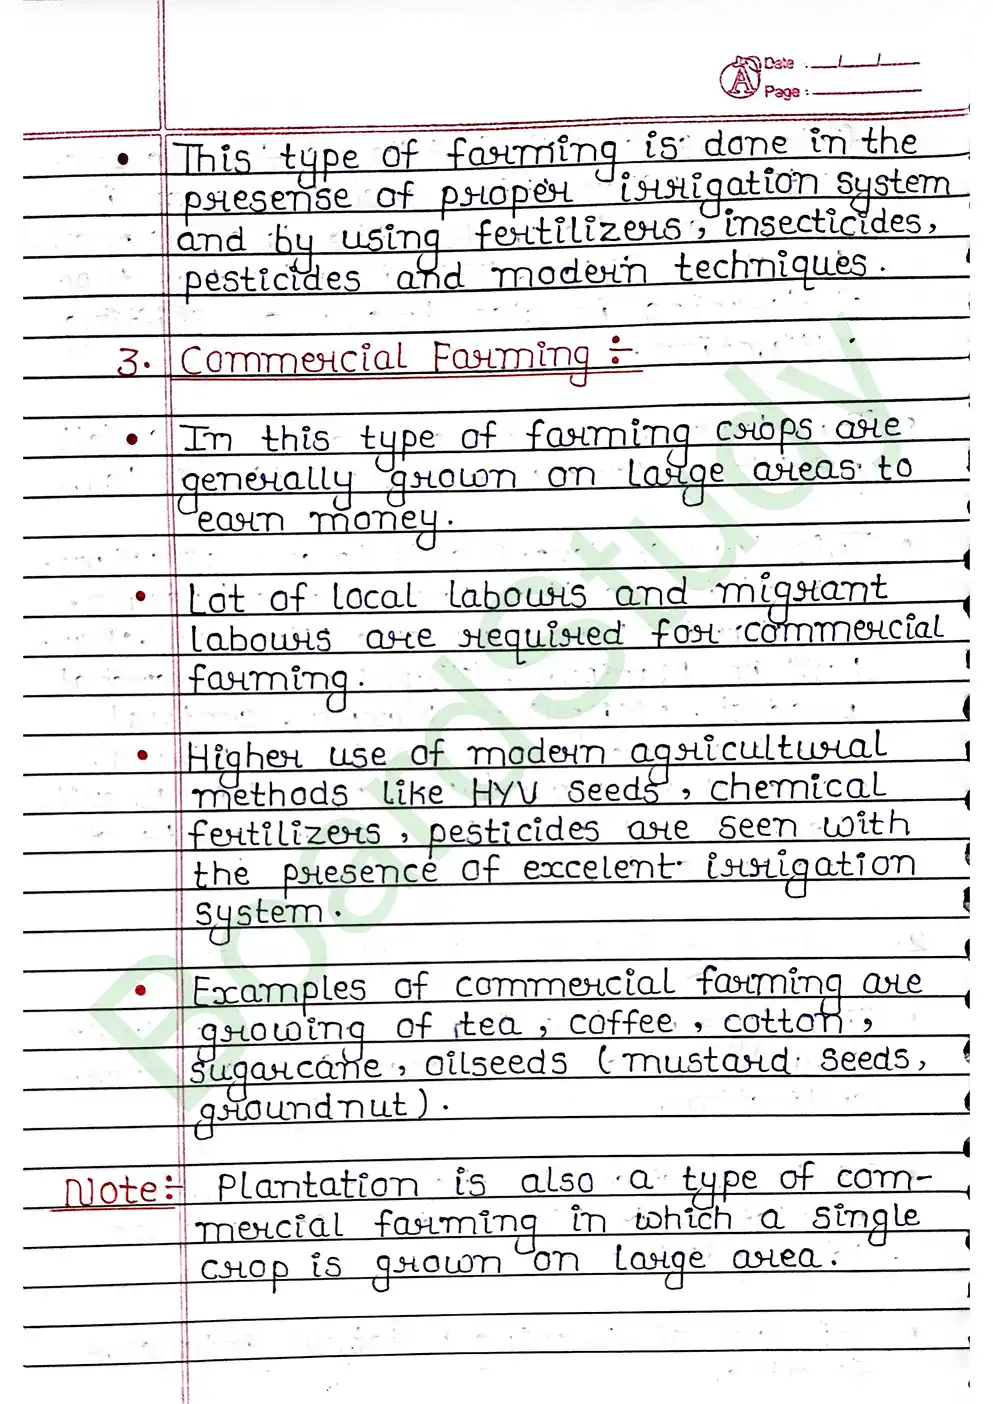 Date : __/__/__
Page :
A
• This type of farming is done in the
presense of proper irrigation system
and by using fertilizers, insecticides,
pesticides and modern techniques.
3. Commercial Farming :-
• In this type of farming crops are
generally grown on large areas to
earn money.
• Lot of local labours and migrant
labours are required for commercial
farming.
• Higher use of modern agricultural
methods like HYV seeds, chemical
fertilizers, pesticides are seen with
the presence of excelent irrigation
system.
• Examples of commercial farming are
growing of tea, coffee, cotton,
sugarcane, oilseeds (mustard seeds,
groundnut).
Note:- Plantation is also a type of com-
mercial farming in which a single
crop is grown on large area.
BoardStudy